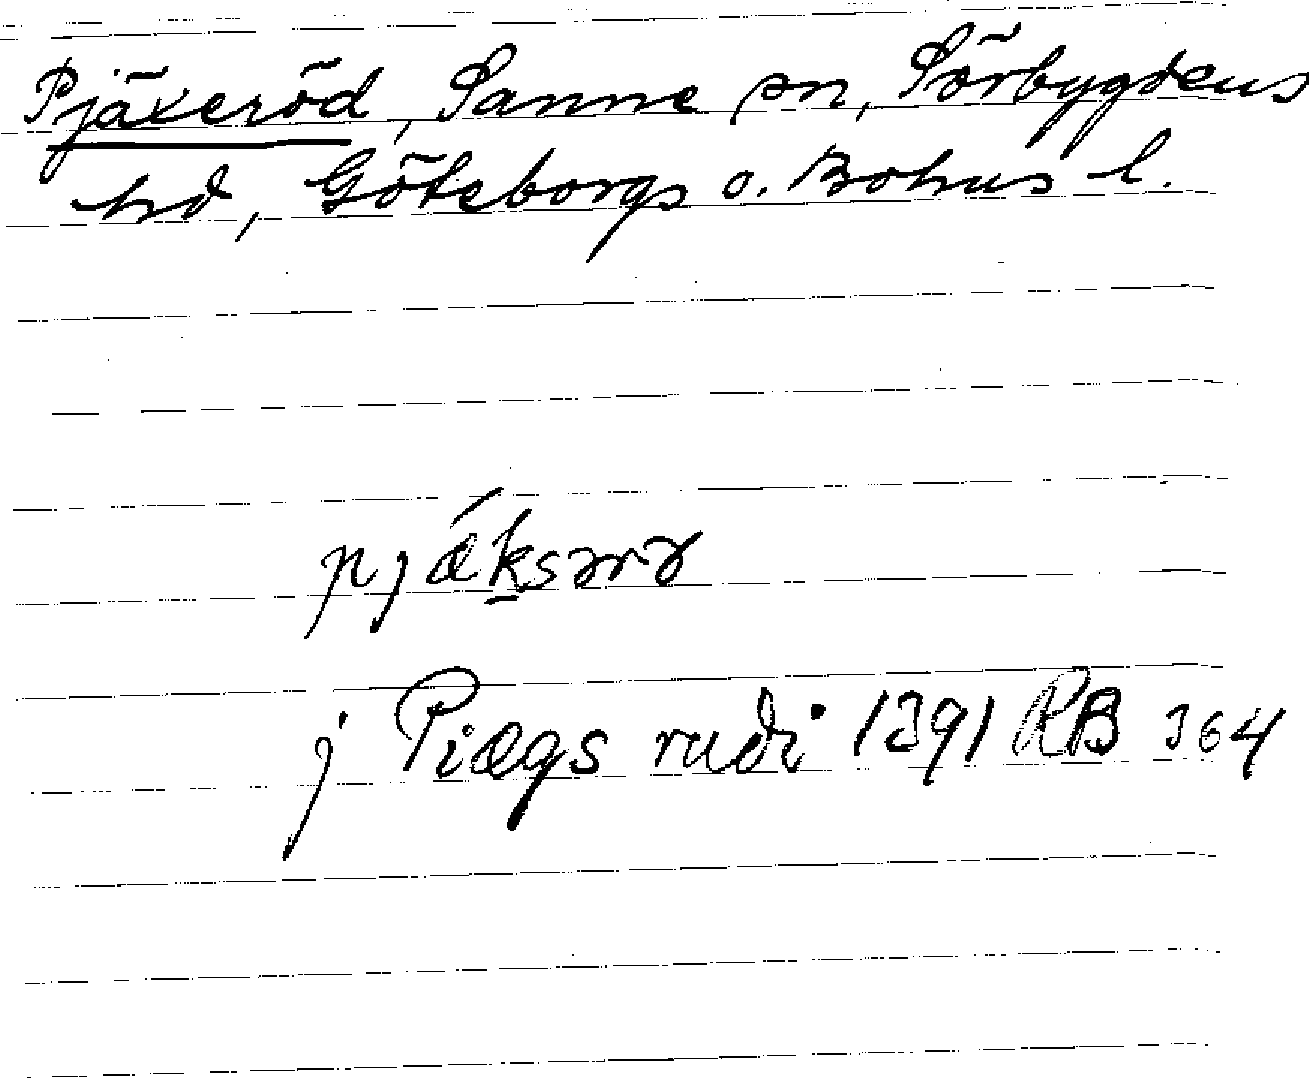 Pjäxeröd, Sanne sn, Sörbygdens
hd, Göteborgs o. Bohus l.
pjǽksərə
j Piægs ruði 1391 RB 364